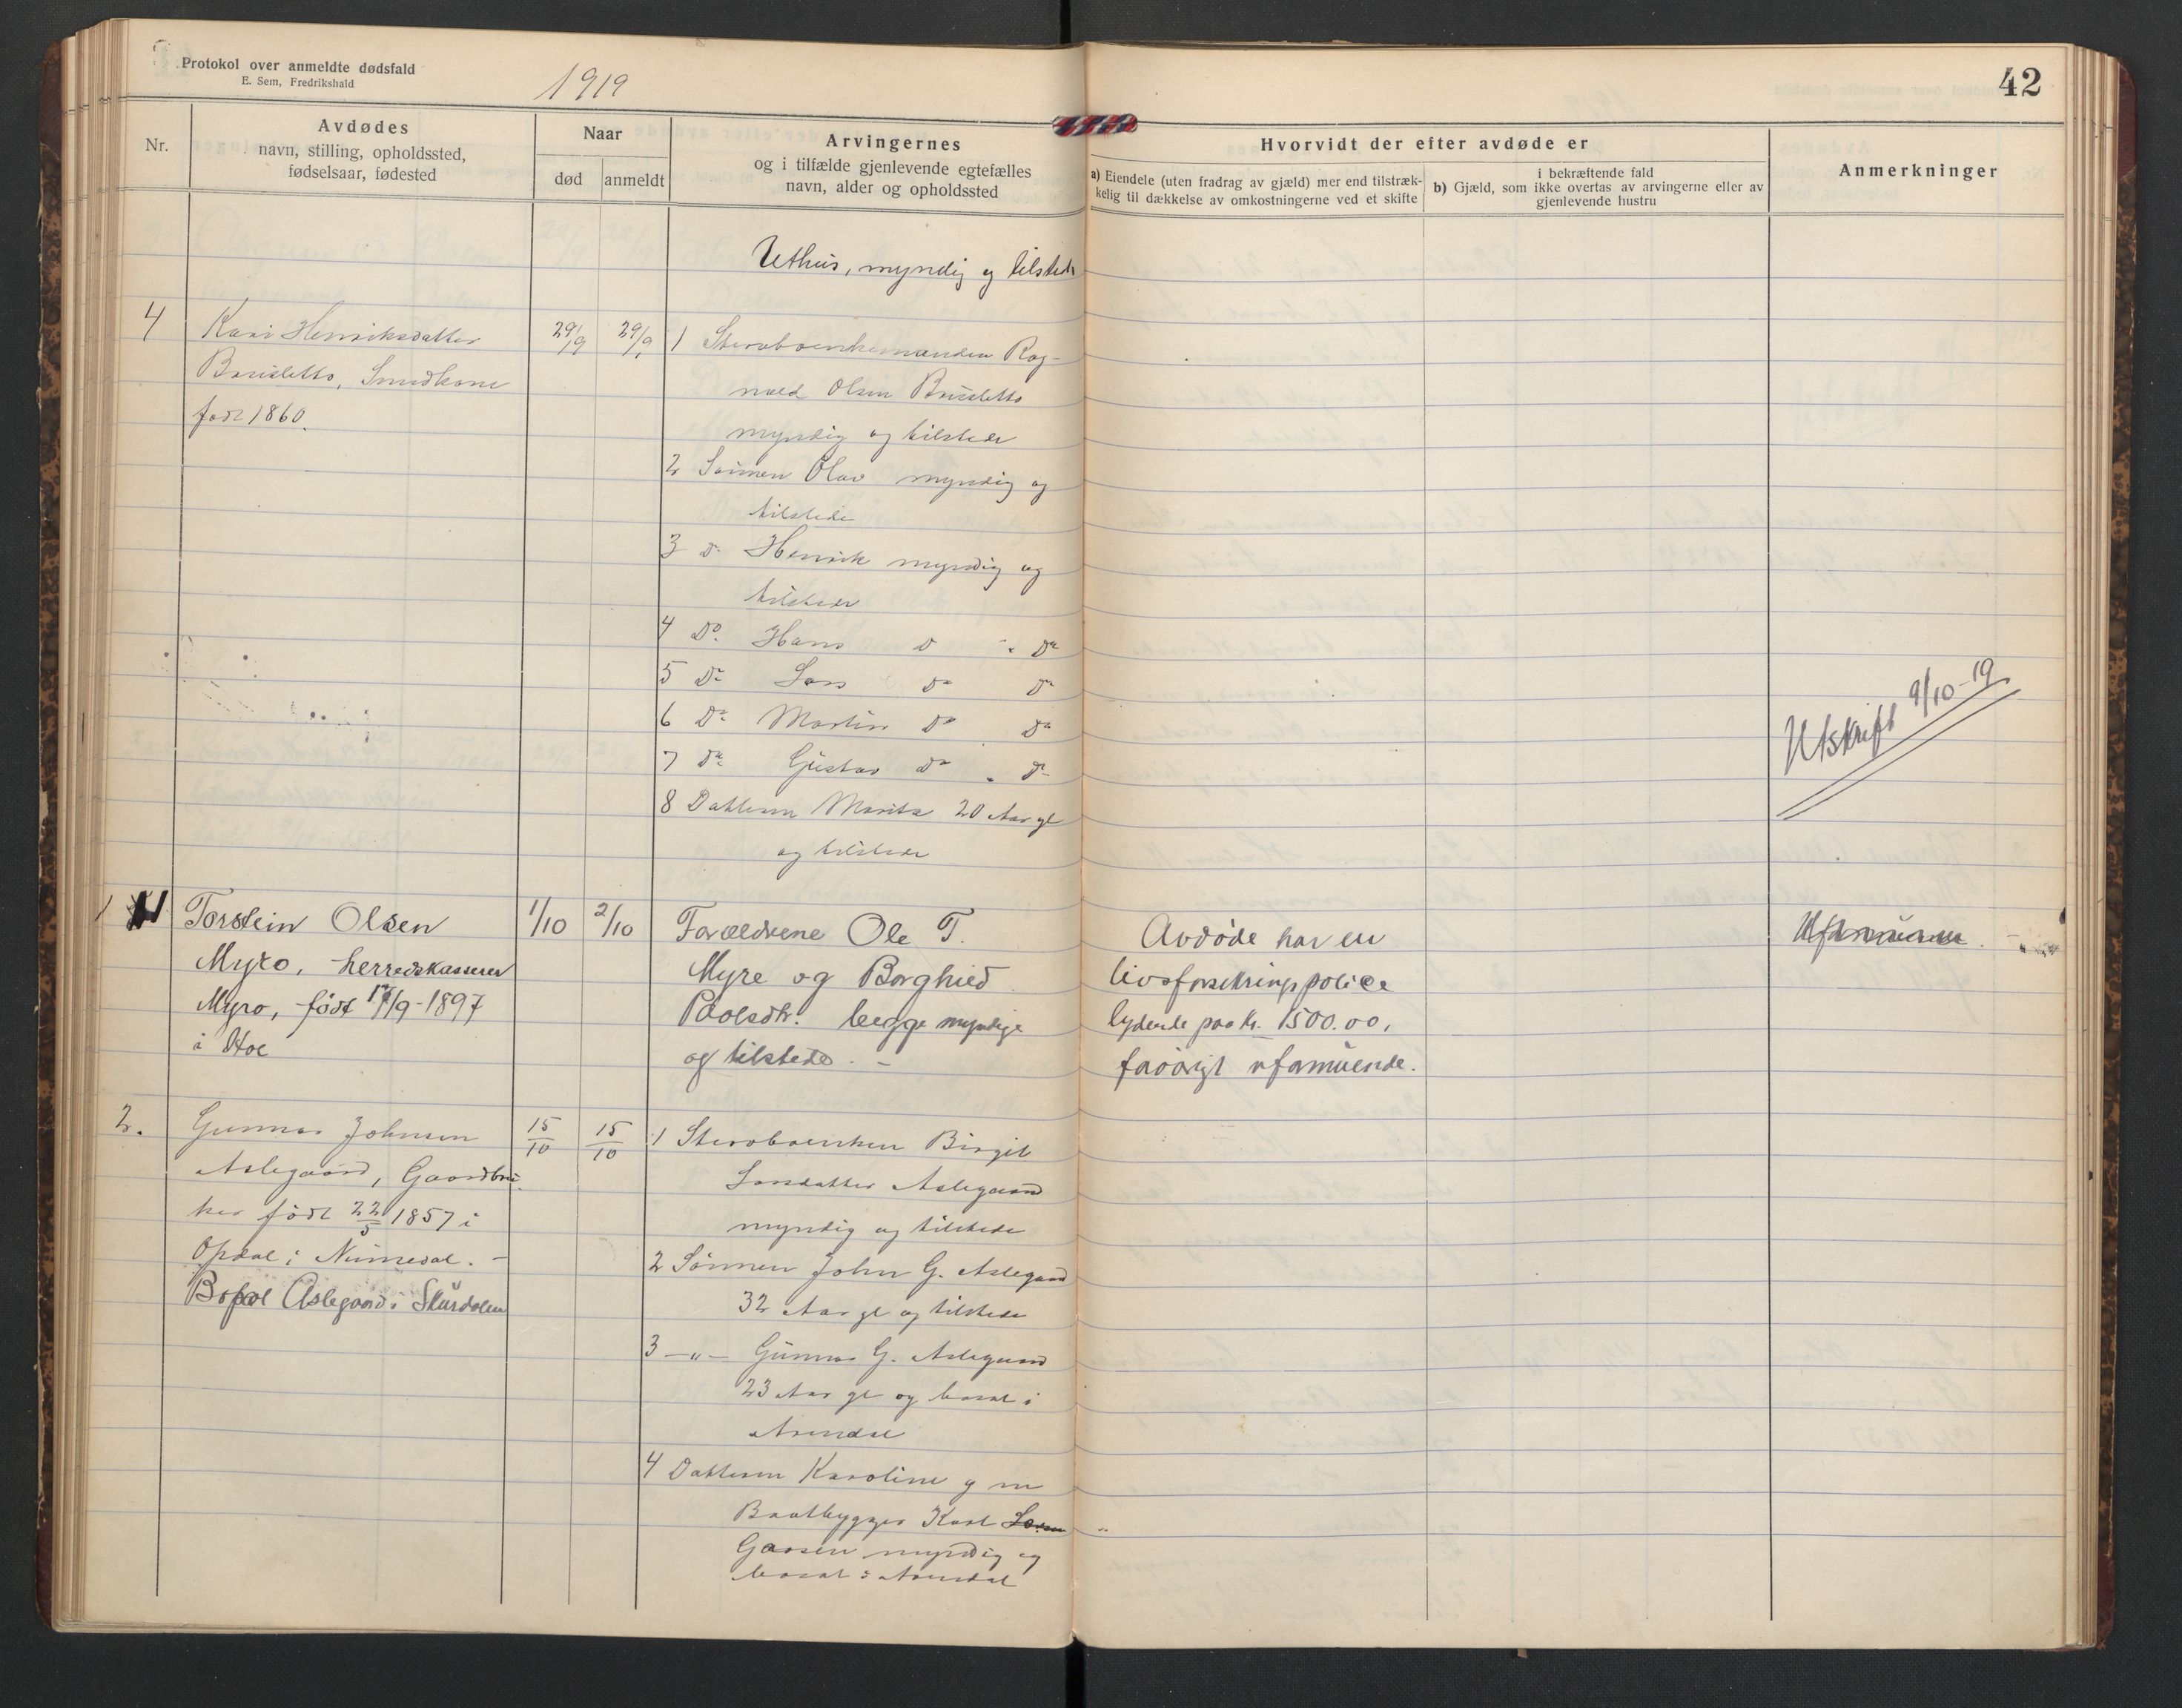 Protokol over anmeldte dødsfald
E. Sem, Fredrikshald
1919
42
Nr.
Avdødes
navn, stilling, opholdssted,
fødselsaar, fødested
Naar
død
anmeldt
Arvingernes
og i tilfælde gjenlevende egtefælles
navn, alder og opholdssted
Hvorvidt der efter avdøde er
a) Eiendele (uten fradrag av gjæld) mer end tilstræk-
kelig til dækkelse av omkostningerne ved et skifte
i bekræftende fald
b) Gjæld, som ikke overtas av arvingerne eller av
gjenlevende hustru
Anmerkninger
Uthus, myndig og tilstede
4
Kari Henriksdatter
Brusletto, Smedkone
født 1860.
29/9
29/9
1 Rag-
nvald Olsen Brusletto
myndig og tilstede
2 Sønnen Olav myndig og
tilstede
3 d. Henrik myndig og
tilstede
4 Do. Hans d " Do
5 Do Lars Do Do
6 Do Martin Do Do
7 Do Gustav Do " Do
8 Datteren Marita 20 Aar gl
og tilstede
Utskrift 9/10-19
1
Torstein Olsen
Myro, herredskasserer
Myro, født 17/9-1897
i Hol
1/10
2/10
Forældrene Ole T.
Myre og Borghild
Paalsdtr. begge myndige
og tilstede. –
Avdøde har en
livsforsikringspolice
lydende paa Kr. 1500.00,
forøvrigt uformuende.
Uformuende
2.
Gunnar Johnsen
Aslegaard, Gaardbru-
ker født 22/5 1857 i
Opdal i Numedal. –
Bopæl Aslegaard i Skurdalen
15/10
15/10
1 Birgit
Larsdatter Aslegaard
myndig og tilstede
2 Sønnen John G. Aslegaard
32 Aar gl og tilstede
3 –"– Gunnar G. Aslegaard
23 Aar gl og bosat i
Arendal
4 Datteren Karoline g m
Baatbygger Karl
myndig og
bosat i Arendal